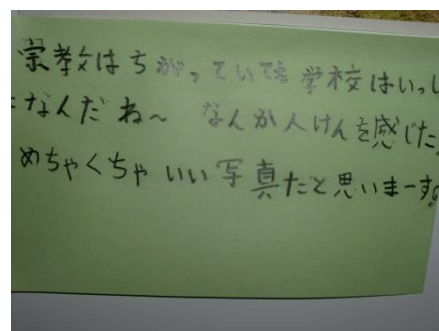 宗教はちがっていても学校はいっし
なんだね〜 なんか人けんを感じた。
めちゃくちゃいい写真だと思いまーす。